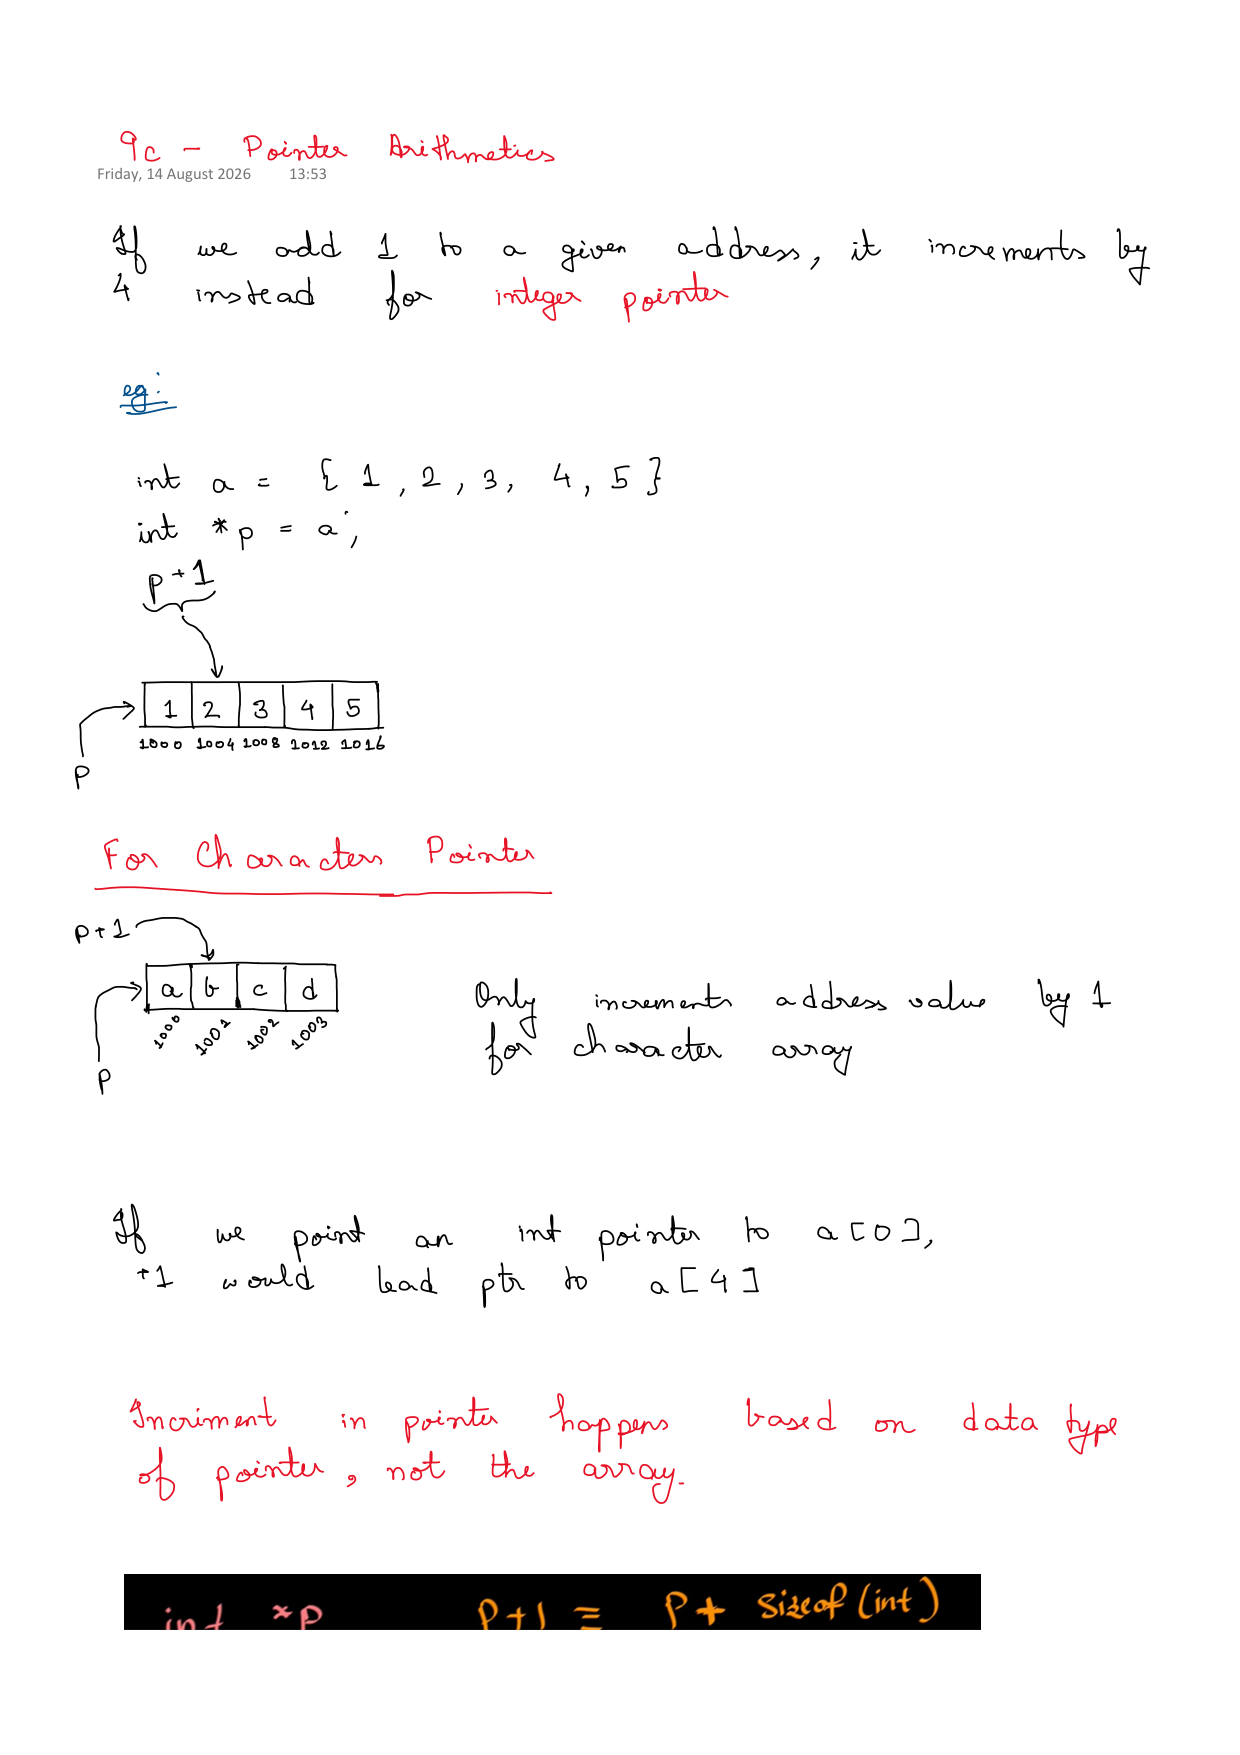 9c - Pointer Arithmetics
Friday, 14 August 2026 13:53
If we add 1 to a given address, it increments by
4 instead for integer pointer
eg:
int a = { 1 , 2 , 3, 4 , 5 }
int *p = a ;
p+1
1 2 3 4 5
1000 1004 1008 1012 1016
P
For Characters Pointer
P+1
a b c d
1000 1001 1002 1003
P
Only increments address value by 1
for character array
If we point an int pointer to a[0],
+1 would lead ptr to a[4]
Incriment in pointer happens based on data type
of pointer, not the array.
int *p P+1 ≡ P+ sizeof(int)